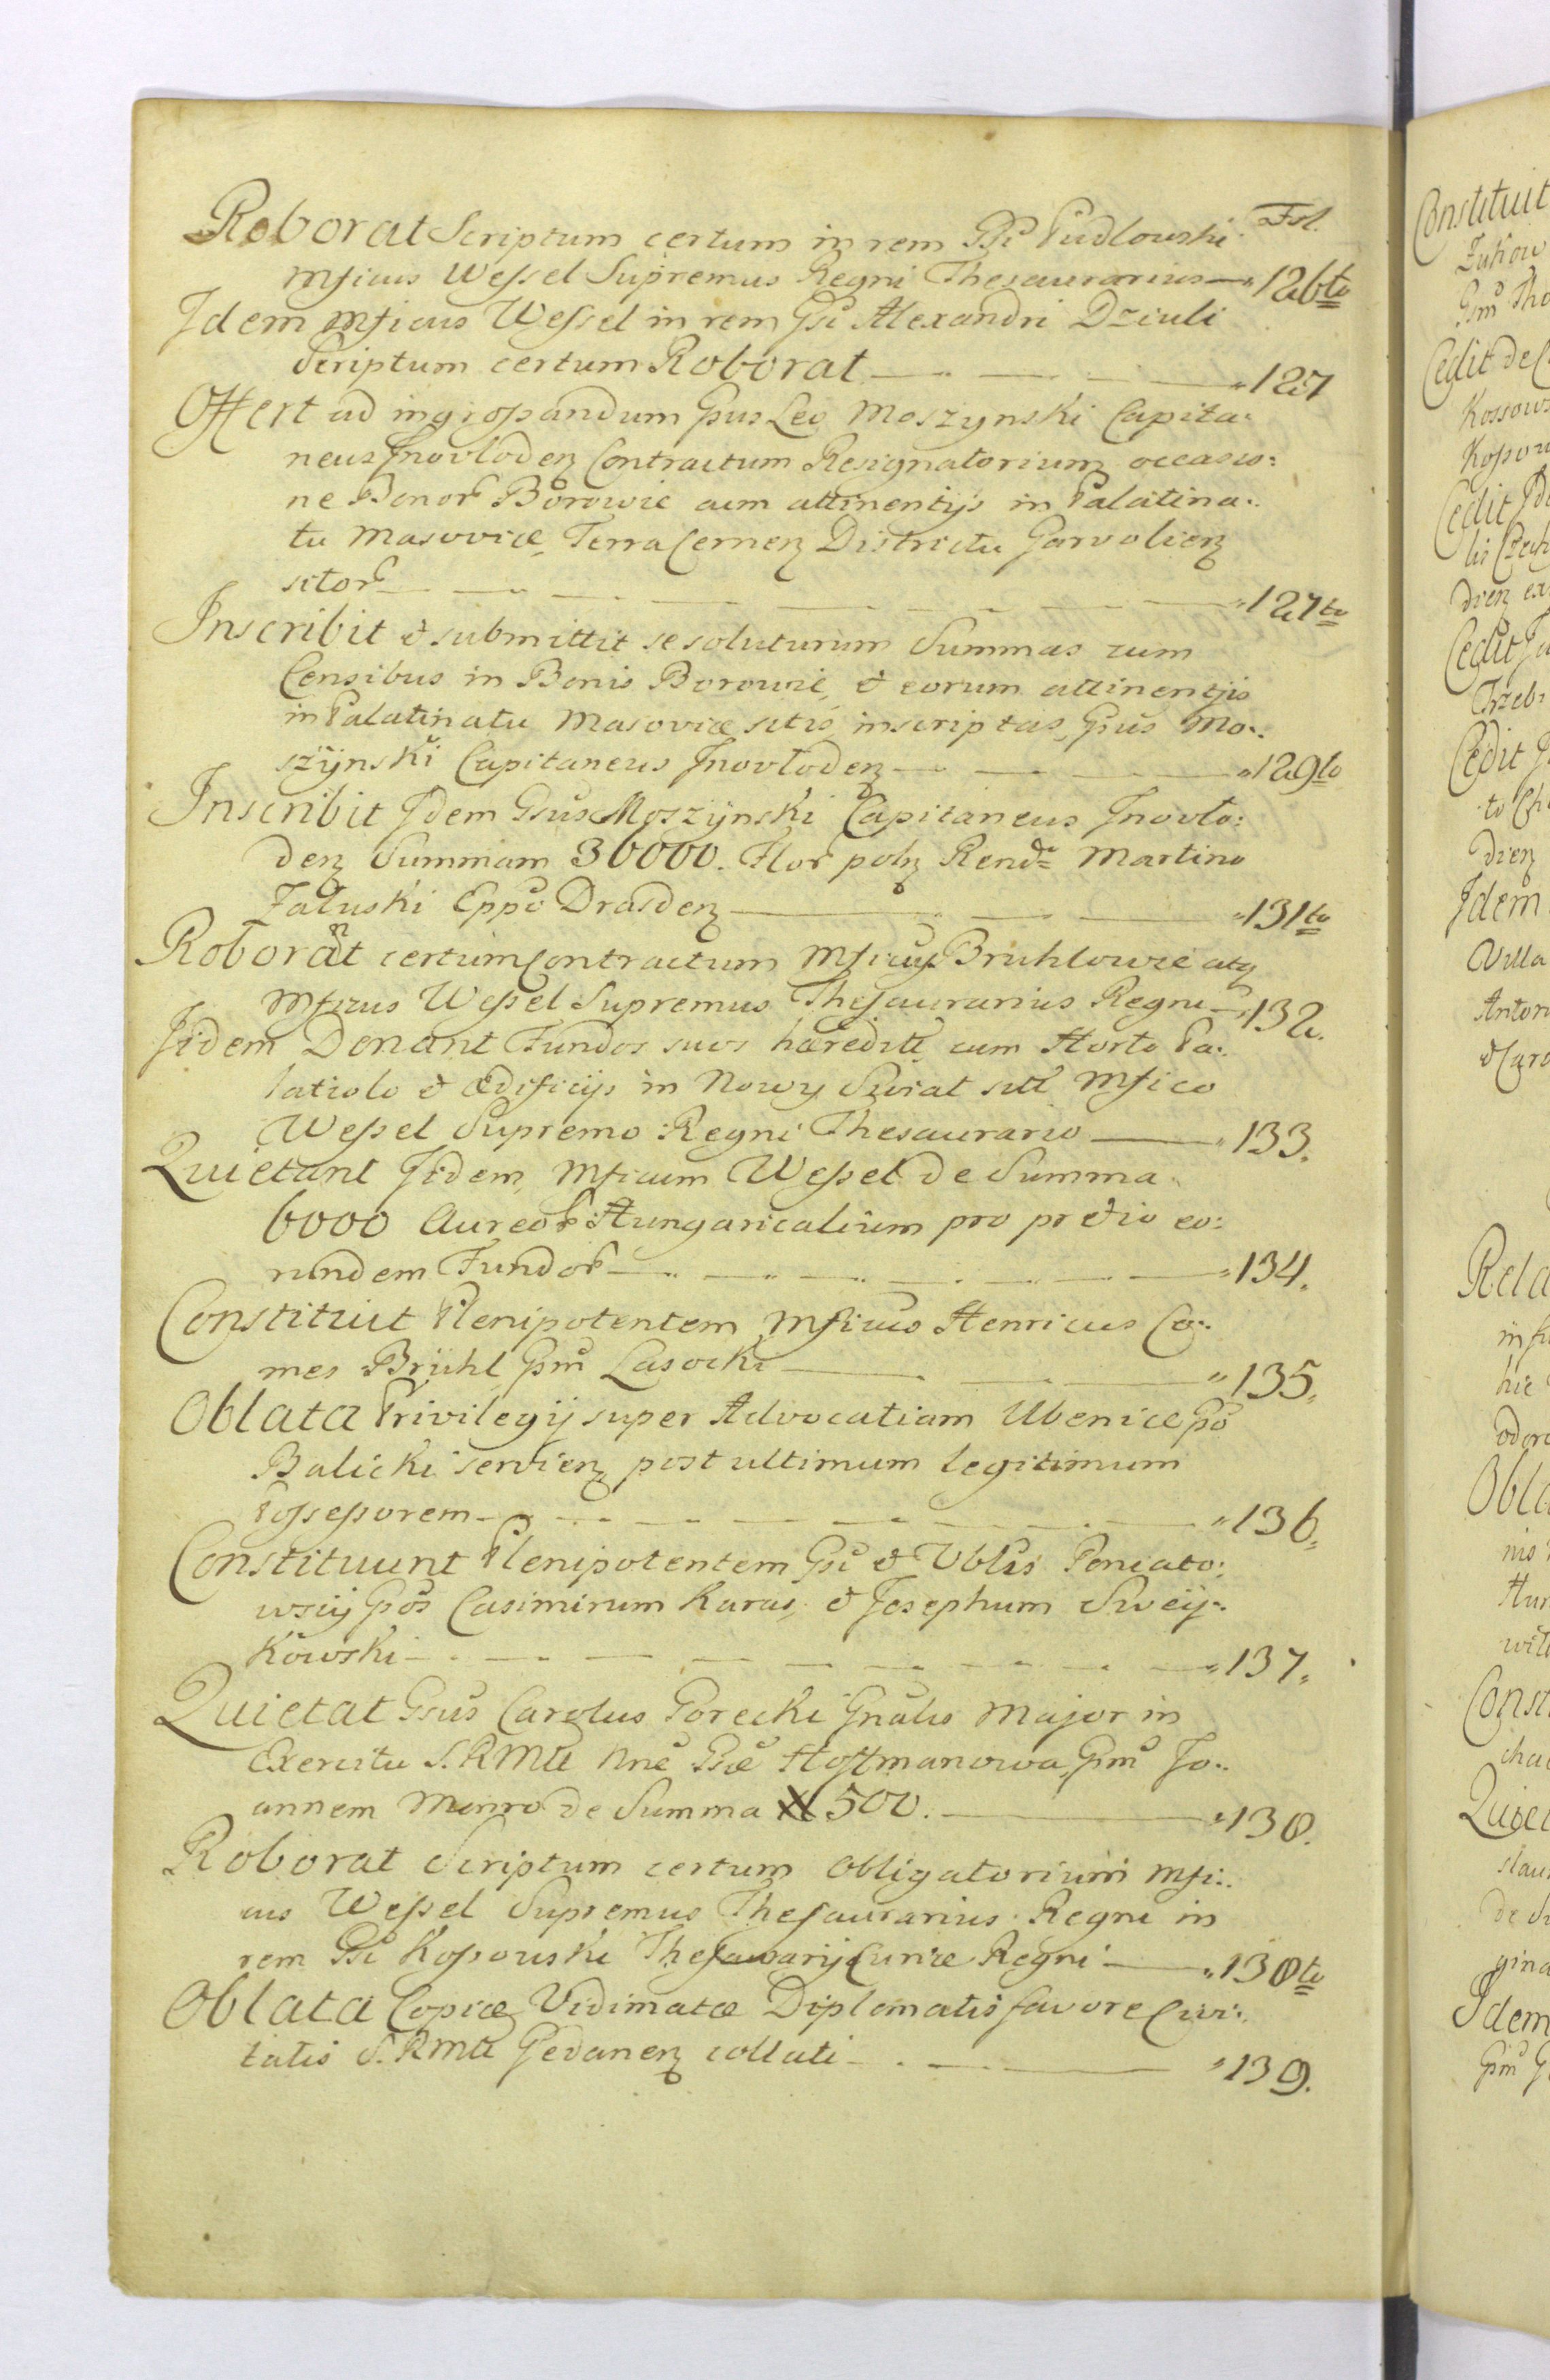 Fol.
Roborat Scriptum certum in rem Gsi Pudlowski
Mficus Wessel Supremus Regni Thesaurarius — 126to
Idem Mficus Wessel in rem Gsi Alexandri Dziuli
Scriptum certum Roborat — "127
Offert ad ingrossandum Gsus Leo Moszynski Capita:
neus Inovlodenz Contractum Resignatorium occasio:
ne Bonor Borowie cum attinentijs in Palatina:
tu Masoviæ, Terra Cernenz Districtu Garvolienz
sitor — "127to
Inscribit & submittit se soluturum Summas cum
Censibus in Bonis Borowie, & eorum attinentjis
in Palatinatu Masoviæ sitis, inscriptas, Gsus Mo:
szÿnski Capitaneus Inovlodenz — "129to
Inscribit Idem Gsus Moszÿnski Capitaneus Inovlo:
denz Summam 36000. Flor polz Rendo Martino
Załuski Eppo Drasdenz — "131to
Roborant certum Contractum Mficus Bruhlowie atq
Mficus Wessel Supremus Thesaurarius Regni — "132.
Iidem Donant Fundos suos hæredit, cum Horto Pa:
latiolo & ædificijs in Nowy Swiat sitt Mfico
Wessel Supremo Regni Thesaurario — "133.
Quietant Iidem, Mficum Wessel de Summa
6000 Aureor Hungaricalium pro pretio eo:
rundem Fundor — "134.
Constituit Plenipotentem Mficus Henricus Co:
mes Brühl Gsm Lasocki — "135.
Oblata Privilegij super Advocatiam Ubenice Gso
Balicki servienz post ultimum legitimum
Possessorem — "136.
Constituunt Plenipotentem Gsi & Vbles Poniato:
wscij Gsos Casimirum Karas, & Josephum Sweÿ:
kowski — "137.
Quietat Gsus Carolus Gorecki Gnalis Major in
Exercitu S. R Mtt nne Gsæ Hoffmanowa, Gsm Jo:
annem Monro de Summa # 500. — "138.
Roborat Scriptum certum Obligatorium Mfi:
cus Wessel Supremus Thesaurarius Regni in
rem Gsi Kossowski Thesaurarij Curiæ Regni — "138to
Oblata Copiæ Vidimatæ Diplomatis favore Civi:
tatis S. R Mtt Gedanenz collati — "139.